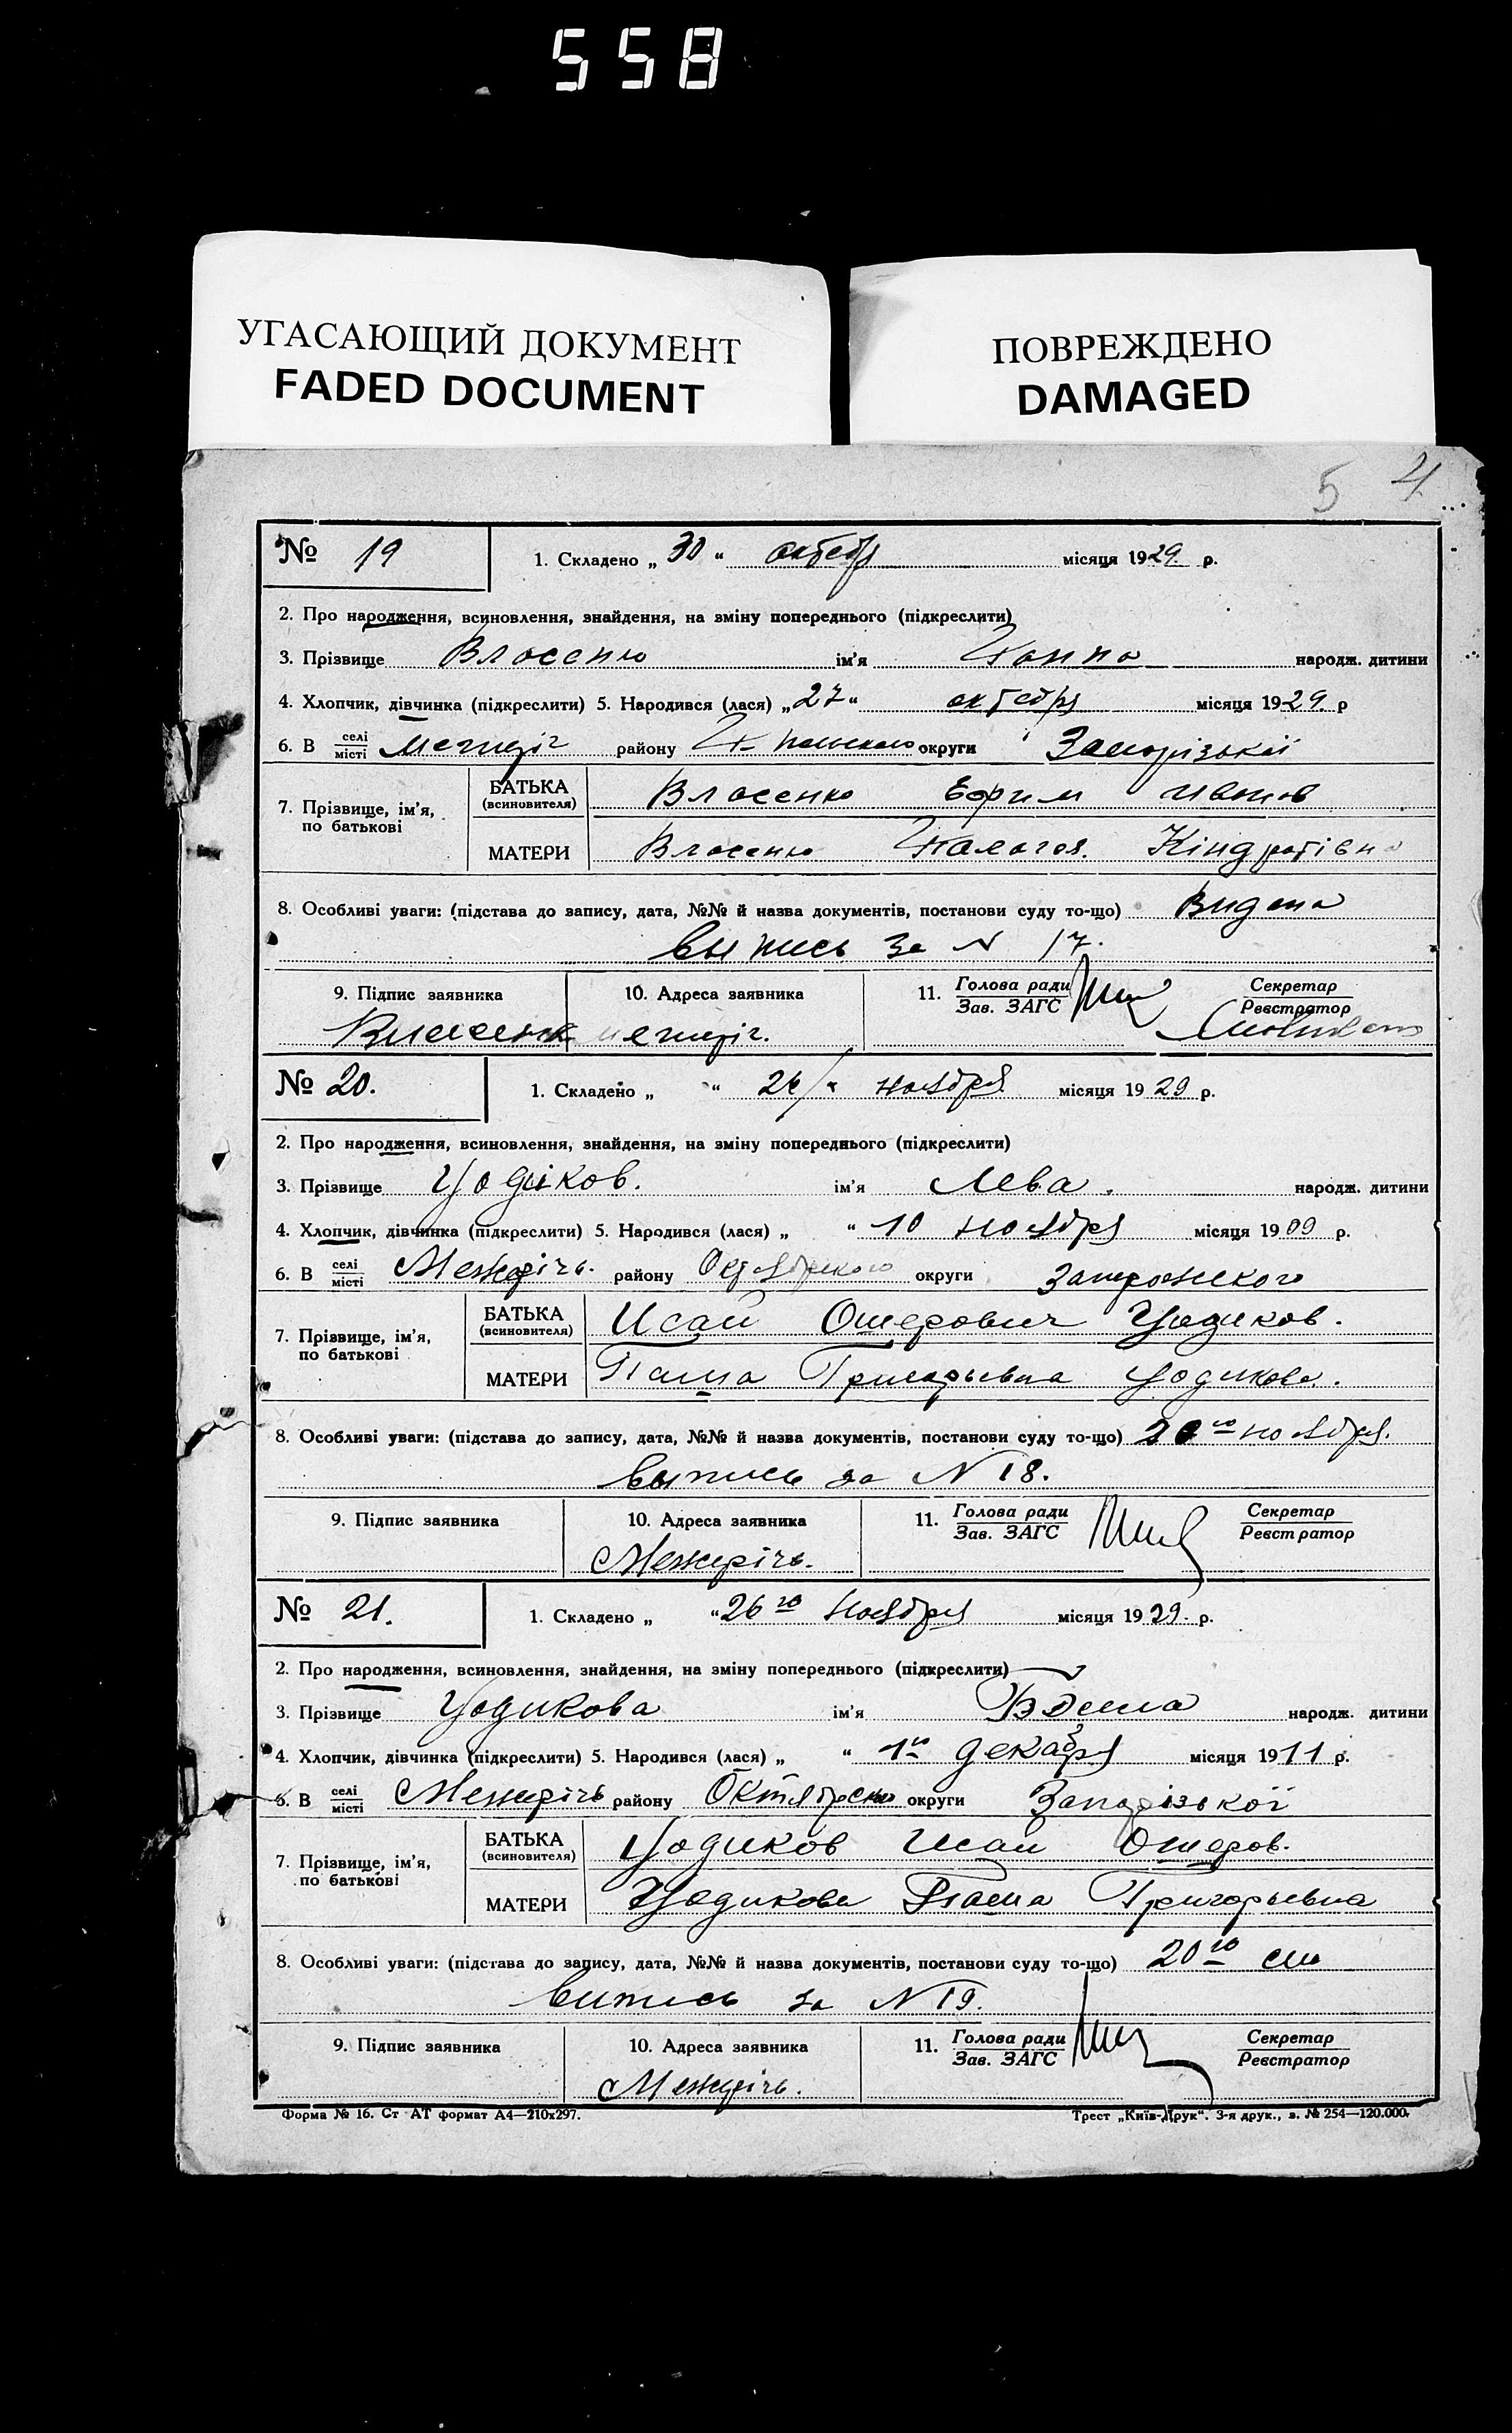 558
УГАСАЮЩИЙ ДОКУМЕНТ
FADED DOCUMENT
ПОВРЕЖДЕНО
DAMAGED
5 4
№ 19
1. Складено „ 30 “ октебр місяця 1929 р.
2. Про народження, всиновлення, знайдення, на зміну попереднього (підкреслити)
3. Прізвище Власенко ім'я Ганна народж. дитини
4. Хлопчик, дівчинка (підкреслити) 5. Народився (лася) „ 27 “ октебря місяця 1929 р
6. В селі/місті району округи Запорізької
7. Прізвище, ім'я, по батькові
БАТЬКА (всиновителя) Власенко Ефрим Иванов
МАТЕРИ Власенко Палагея. Кіндратівна
8. Особливі уваги: (підстава до запису, дата, №№ й назва документів, постанови суду то-що) Видана
выпись за N 17.
9. Підпис заявника
10. Адреса заявника
11. Голова ради/Зав. ЗАГС
Секретар/Реєстратор
№ 20.
1. Складено „ “ 26 ноября місяця 1929 р.
2. Про народження, всиновлення, знайдення, на зміну попереднього (підкреслити)
3. Прізвище Цодіков. ім'я Лева. народж. дитини
4. Хлопчик, дівчинка (підкреслити) 5. Народився (лася) „ “ 10 ноября місяця 1909 р.
6. В селі/місті Межеріч. району Октябрского округи Запорожского
7. Прізвище, ім'я, по батькові
БАТЬКА (всиновителя) Исай Ошерович Цодиков.
МАТЕРИ Паша Григорьевна Цодикова.
8. Особливі уваги: (підстава до запису, дата, №№ й назва документів, постанови суду то-що) 20го ноября.
выпись за N 18.
9. Підпис заявника
10. Адреса заявника
11. Голова ради/Зав. ЗАГС
Секретар/Реєстратор
Межерічь.
№ 21.
1. Складено „ “ 26го ноября місяця 1929 р.
2. Про народження, всиновлення, знайдення, на зміну попереднього (підкреслити)
3. Прізвище Цодикова ім'я народж. дитини
4. Хлопчик, дівчинка (підкреслити) 5. Народився (лася) „ “ 1го декабря місяця 1911 р.
6. В селі/місті Межерічь району округи Запорізької
7. Прізвище, ім'я, по батькові
БАТЬКА (всиновителя) Цодиков Исай Ошеров.
МАТЕРИ Цодикова Паша Григорьевна
8. Особливі уваги: (підстава до запису, дата, №№ й назва документів, постанови суду то-що) 20го
випись за N 19.
9. Підпис заявника
10. Адреса заявника
11. Голова ради/Зав. ЗАГС
Секретар/Реєстратор
Межерічь.
Форма № 16. Ст АТ формат А4—210x297.
Трест „Київ-Друк“. 3-я друк., з. № 254—120.000.